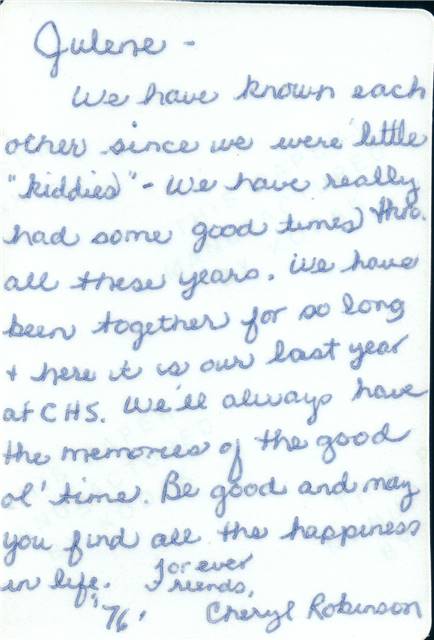 Julene -
We have known each
other since we were little
"kiddies" - We have really
had some good times thro.
all these years. We have
been together for so long
+ here it is our last year
at CHS. We'll always have
the memories of the good
ol' time. Be good and may
you find all the happiness
in life. Forever
Friends,
'76' Cheryl Robinson